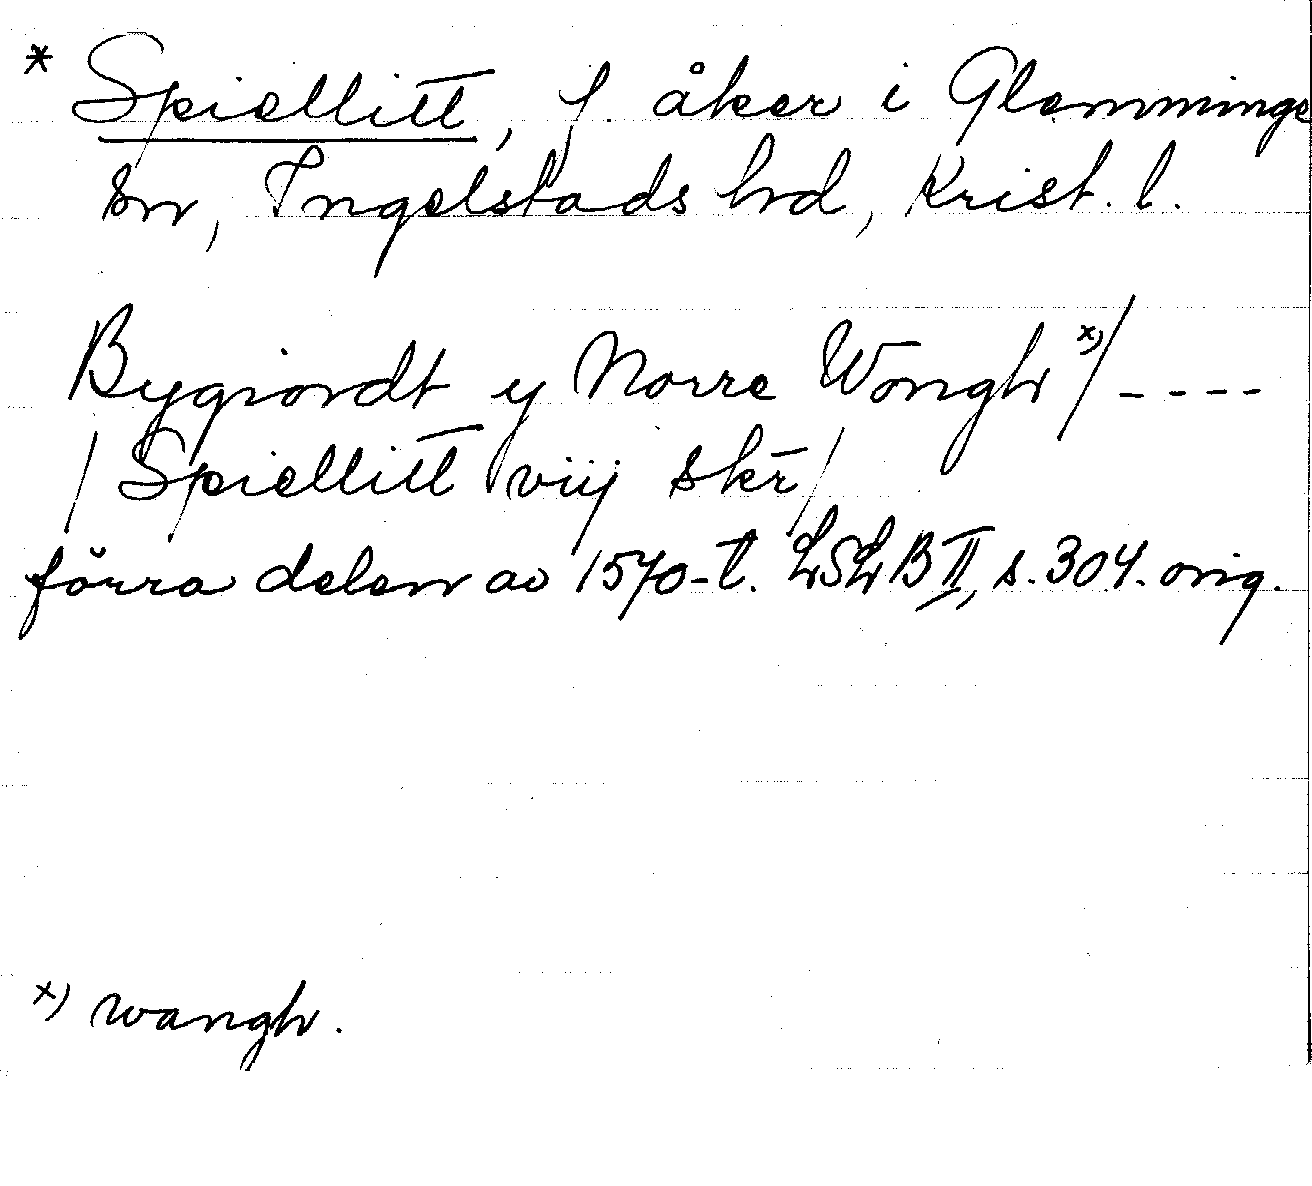 * Spiellitt, f. åker i Glemminge
sn, Ingelstads hd, Krist. l.
Bygiordt y Norre Wongh x)/ - - - -
/ Spiellitt viij skr̄ /
förra delen av 1570-t. LSLB II, s. 304. orig.
x) wangh.